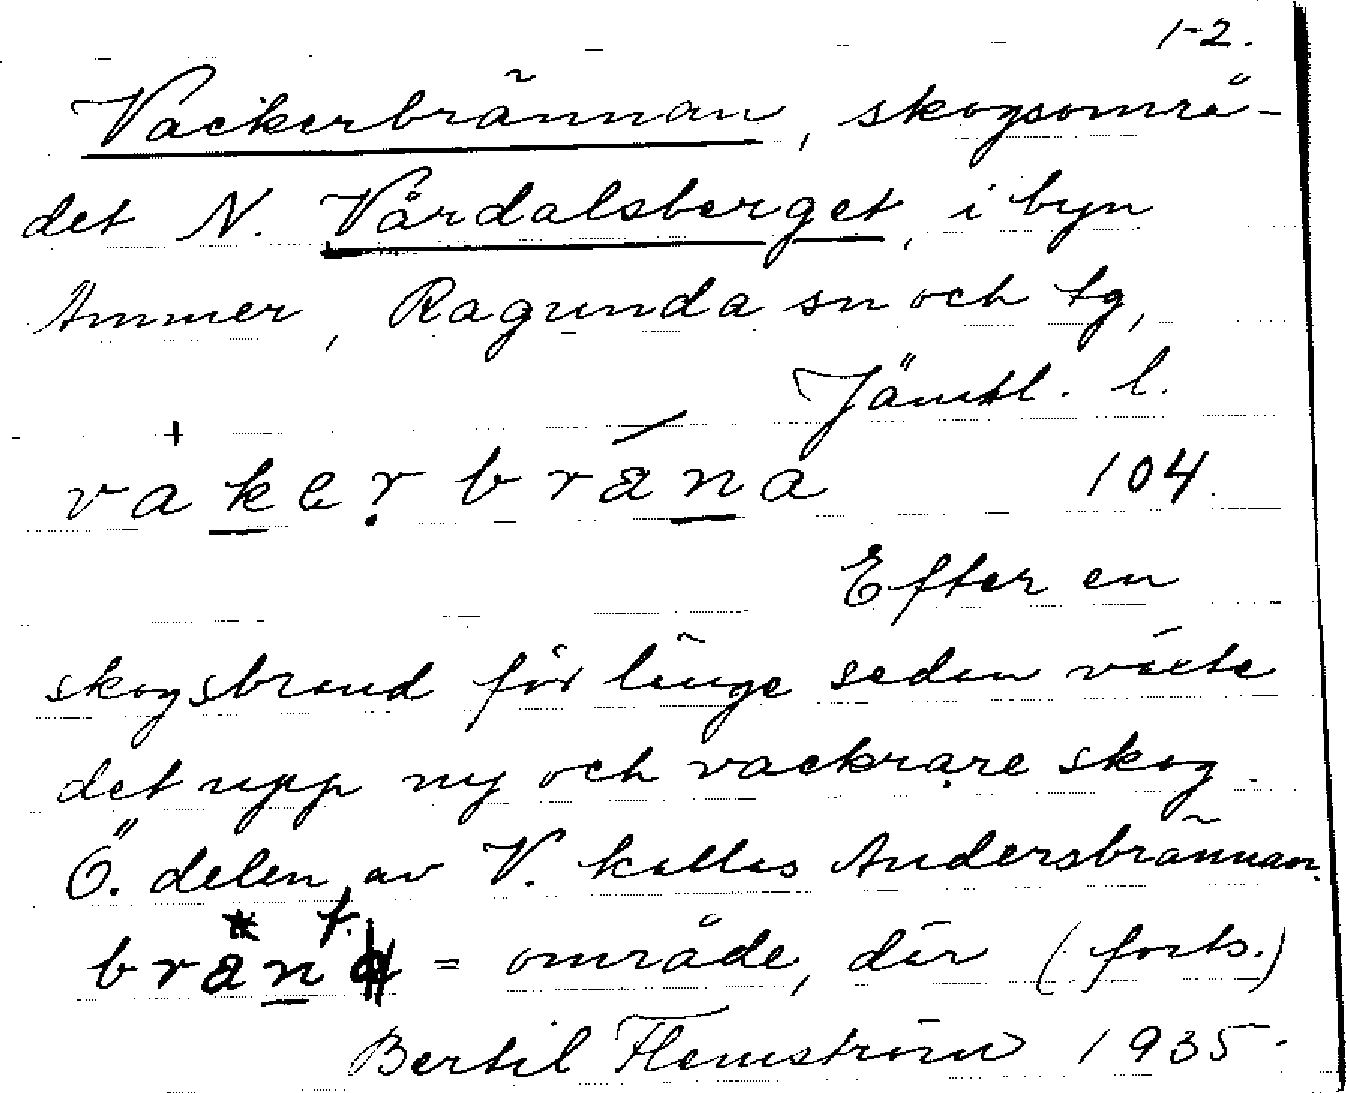 1-2.
Vackerbrännan, skogsområ-
det N. Vårdalsberget, i byn
Ammer, Ragunda sn och tg,
Jämtl. l.
vakerbrana 104.
Efter en
skogsbrand för länge sedan växte
det upp ny och vackrare skog.
Ö. delen av V. kallas Andersbrännan.
bran = område, där (forts.)
Bertil Flemström 1935.